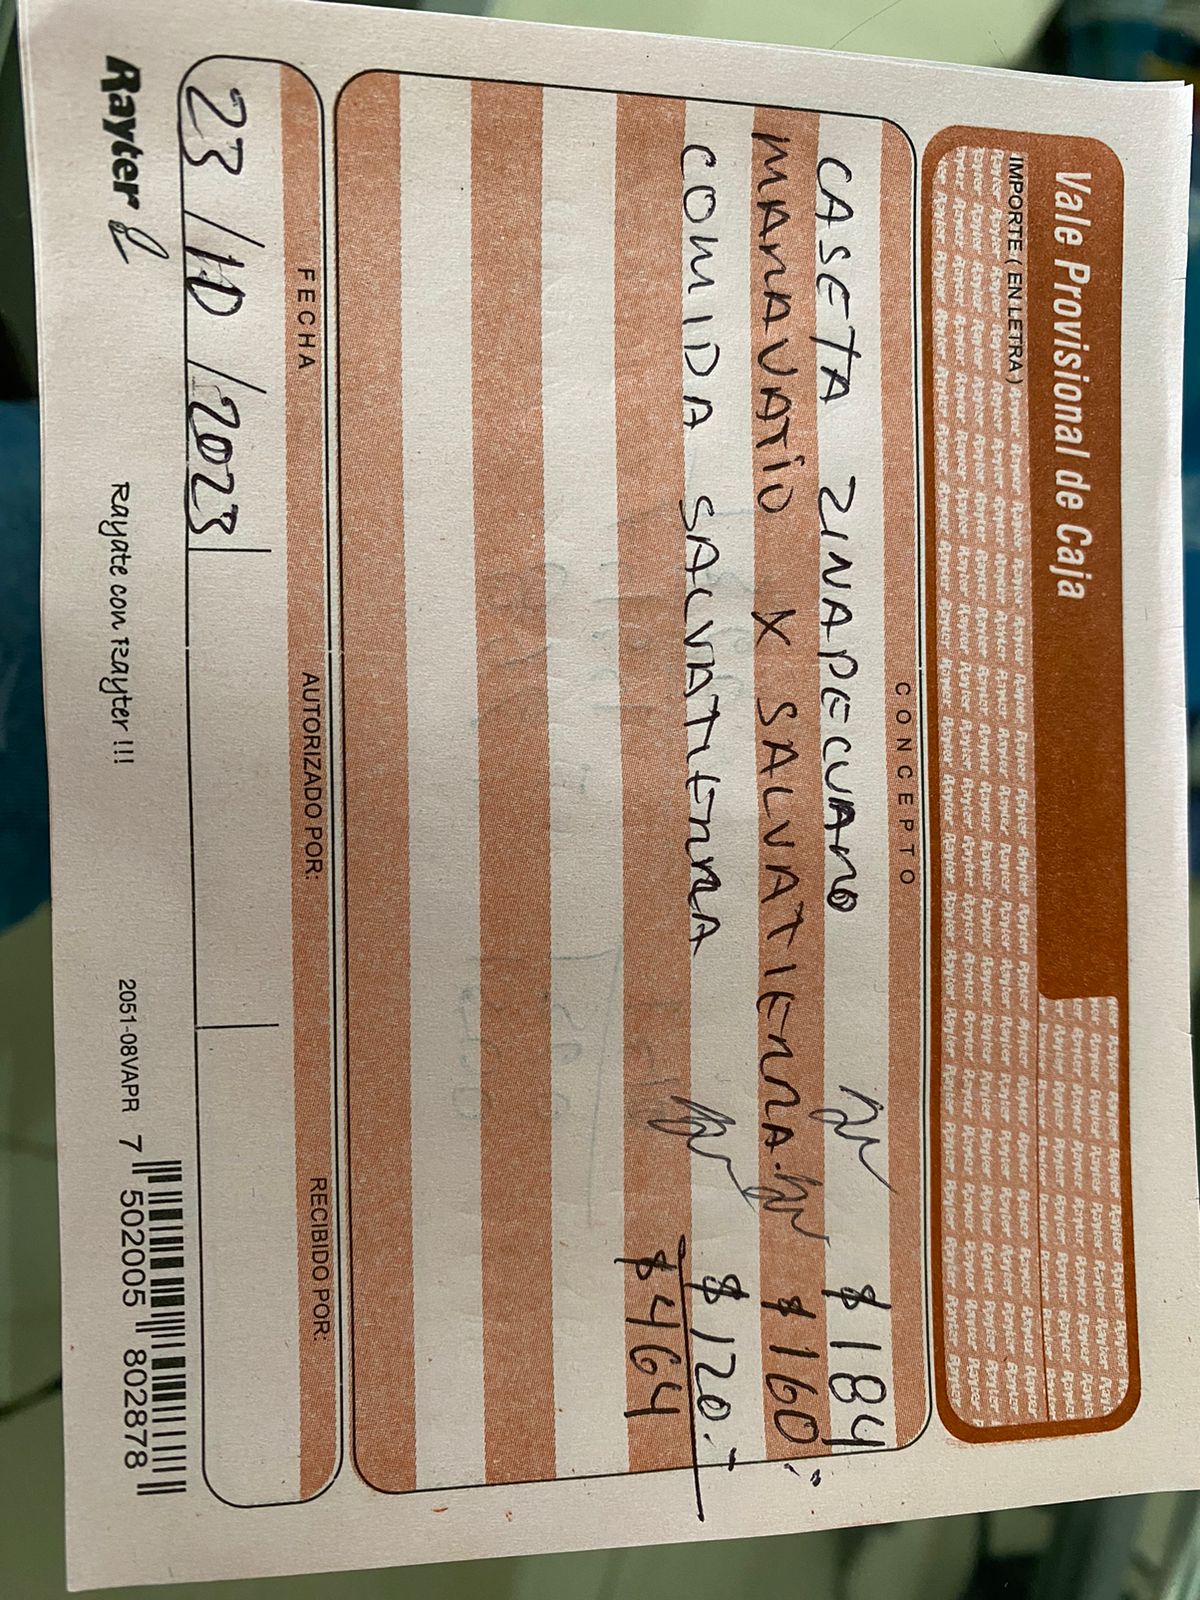 Vale Provisional de Caja
IMPORTE ( EN LETRA )
CONCEPTO
CASETA ZINAPECUARO $184
MARAVATIO X SALVATIERRA. $160.-
COMIDA SALVATIERRA $120.-
$464
FECHA AUTORIZADO POR: RECIBIDO POR:
23/10/2023
Rayter Rayate con Rayter !!! 2051-08VAPR 7 502005 802878